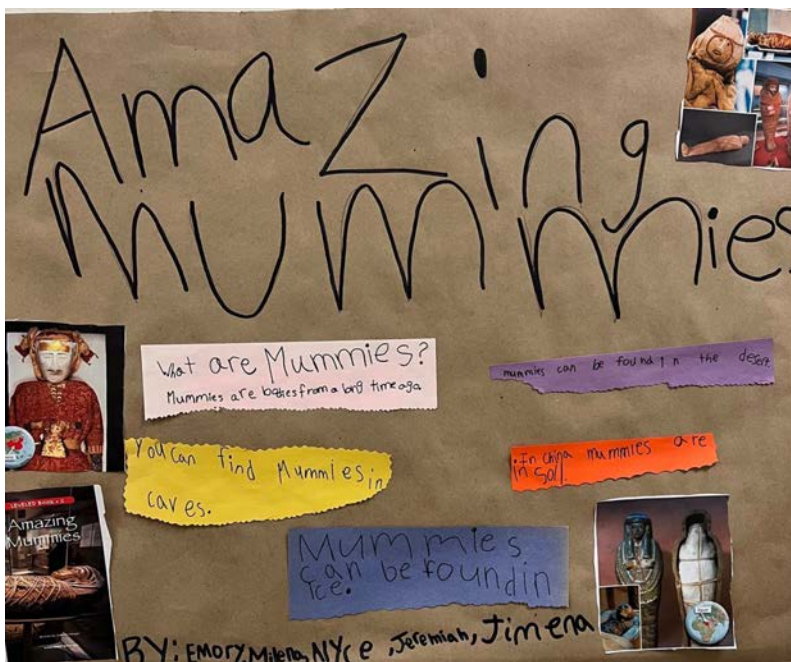 Amazing
Mummies
What are Mummies?
Mummies are bodies from a long time ago
mummies can be found in the desert
You can find Mummies in
caves.
In China mummies are
in soil.
LEVELED BOOK • S
Amazing
Mummies
Mummies
can be found in
Ice.
BY: EMORY, Milena, NYce, Jeremiah, Jimena